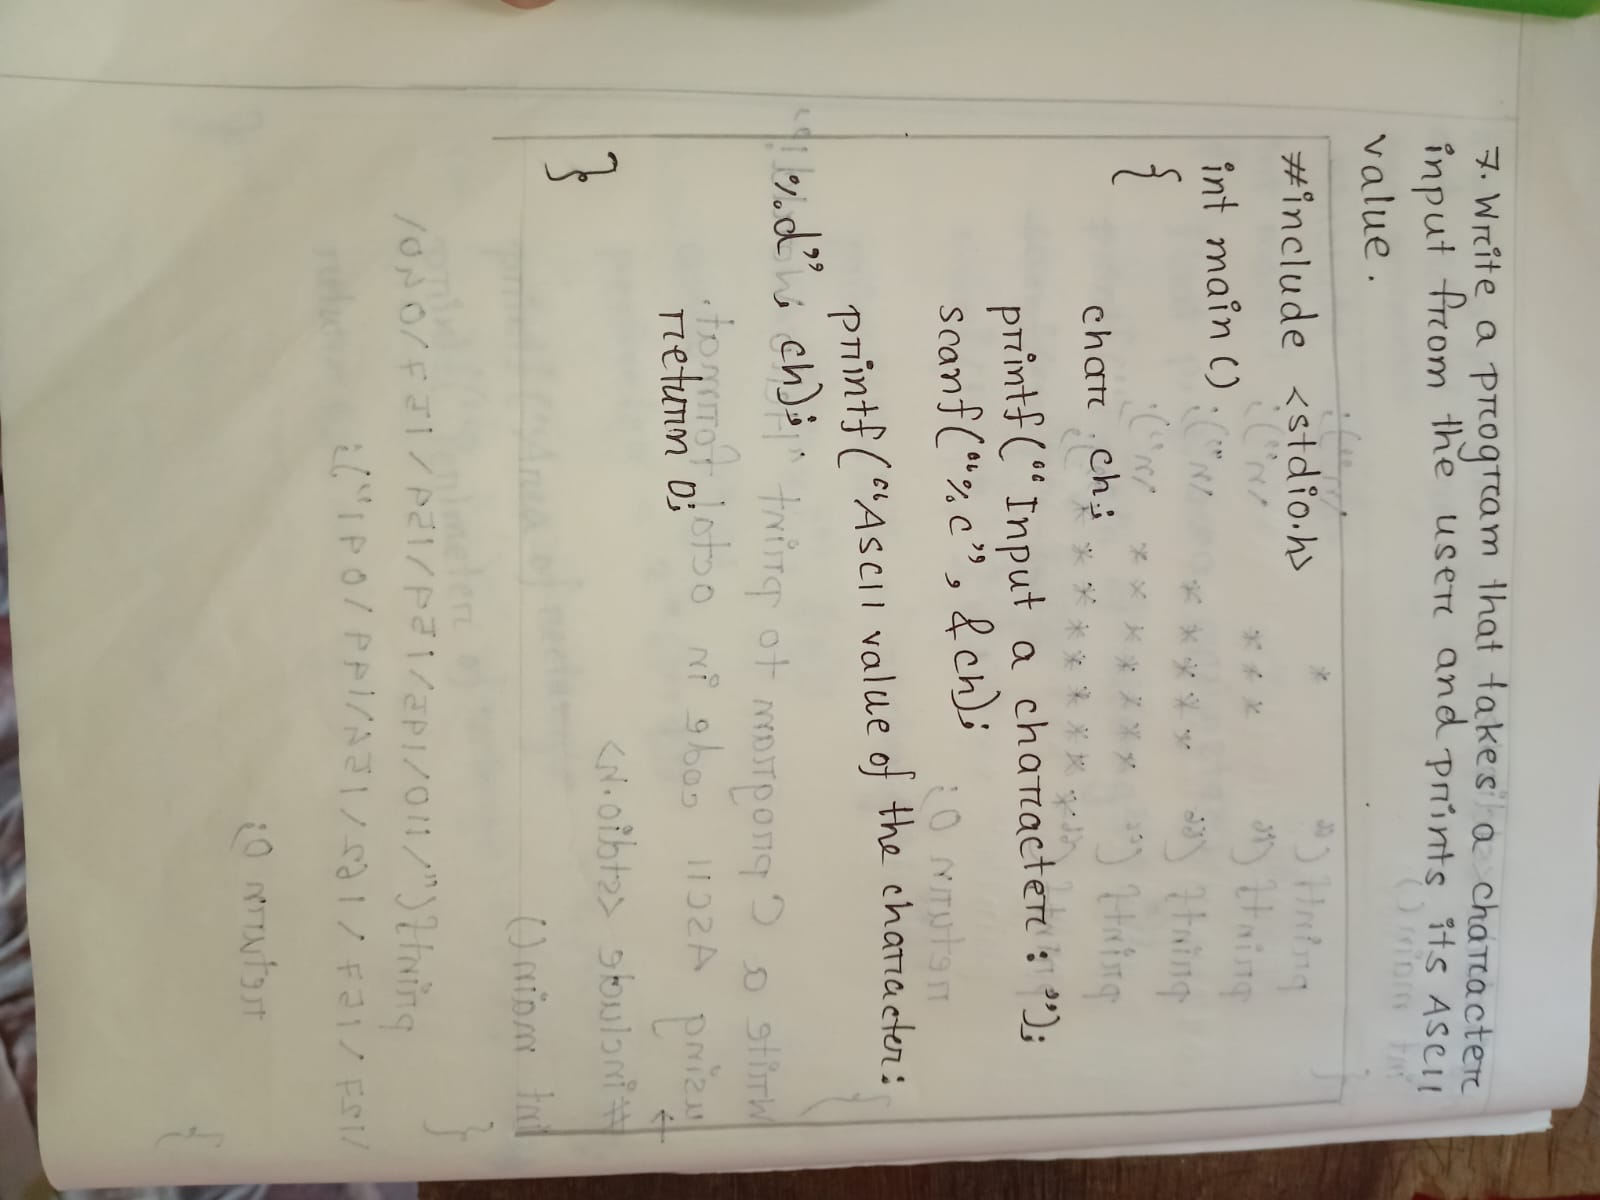 7. Write a program that takes a character
input from the user and prints its ASCII
value.
#include <stdio.h>
int main ()
{
char ch;
printf("Input a character: ");
scanf("%c", &ch);
printf("ASCII value of the character:
%d", ch);
return 0;
}